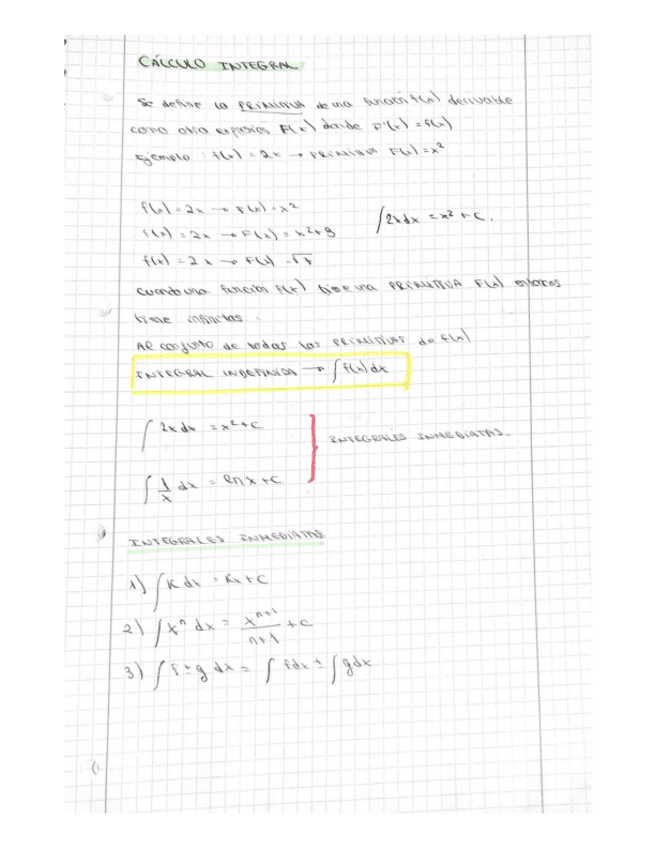 CÁLCULO INTEGRAL
Se define la PRIMITIVA de una función f(x) derivable
como otra expresión F(x) donde F'(x) = f(x)
Ejemplo : f(x) = 2x → PRIMITIVA F(x) = x²
f(x) = 2x → F(x) = x²
f(x) = 2x → F(x) = x²+9
∫2xdx = x² + C.
f(x) = 2x → F(x)
cuando una función f(x) tiene una PRIMITIVA F(x) entonces
tiene infinitas.
Al conjunto de todas las PRIMITIVAS de f(x)
INTEGRAL INDEFINIDA → ∫f(x)dx
∫ 2x dx = x²+C
∫ 1/x dx = ln x + C
INTEGRALES INMEDIATAS.
INTEGRALES INMEDIATAS
1) ∫K dx = Kx + C
2) ∫xⁿ dx = xⁿ⁺¹/n+1 + C
3) ∫f ± g dx = ∫ f dx ± ∫ g dx